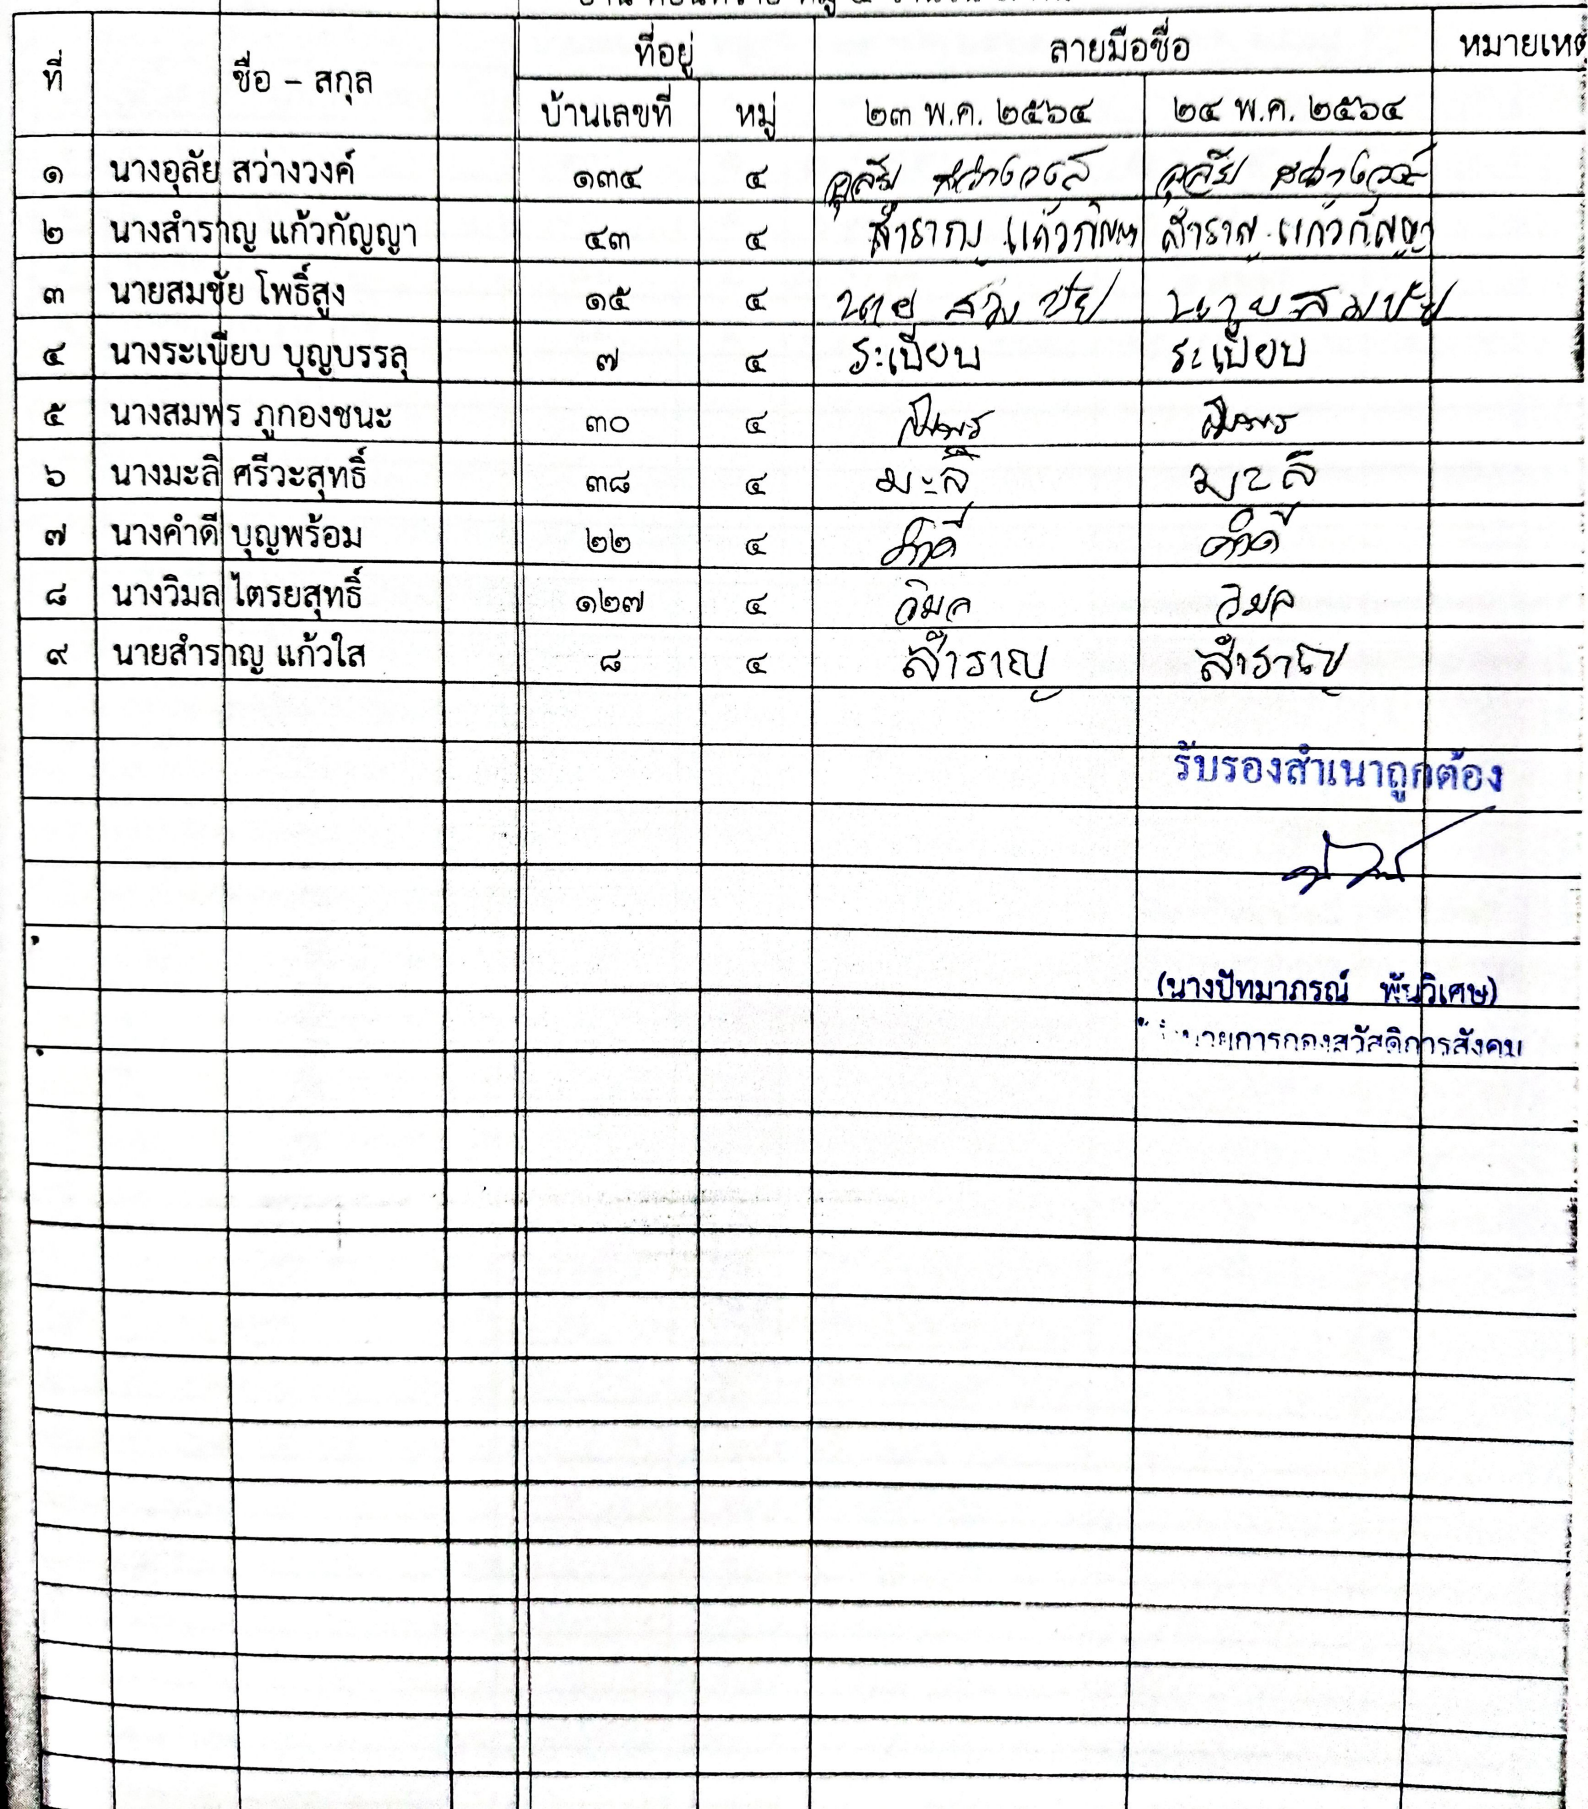 ที่ ชื่อ – สกุล ที่อยู่ ลายมือชื่อ หมายเหตุ
บ้านเลขที่ หมู่ ๒๓ พ.ค. ๒๕๖๔ ๒๔ พ.ค. ๒๕๖๔
๑ นางอุลัย สว่างวงค์ ๑๓๔ ๔ อุลัย อุลัย
๒ นางสำราญ แก้วกัญญา ๔๓ ๔ สำราญ แก้วกัญญา สำราญ แก้วกัญญา
๓ นายสมชัย โพธิ์สูง ๑๕ ๔ นาย สมชัย นายสมชัย
๔ นางระเบียบ บุญบรรลุ ๗ ๔ ระเบียบ ระเบียบ
๕ นางสมพร ภูกองชนะ ๓๐ ๔ สมพร สมพร
๖ นางมะลิ ศรีวะสุทธิ์ ๓๘ ๔ มะลิ มะลิ
๗ นางคำดี บุญพร้อม ๒๒ ๔ คำดี คำดี
๘ นางวิมล ไตรยสุทธิ์ ๑๒๗ ๔ วิมล วิมล
๙ นายสำราญ แก้วใส ๘ ๔ สำราญ สำราญ
รับรองสำเนาถูกต้อง
(นางปัทมาภรณ์ พันวิเศษ)